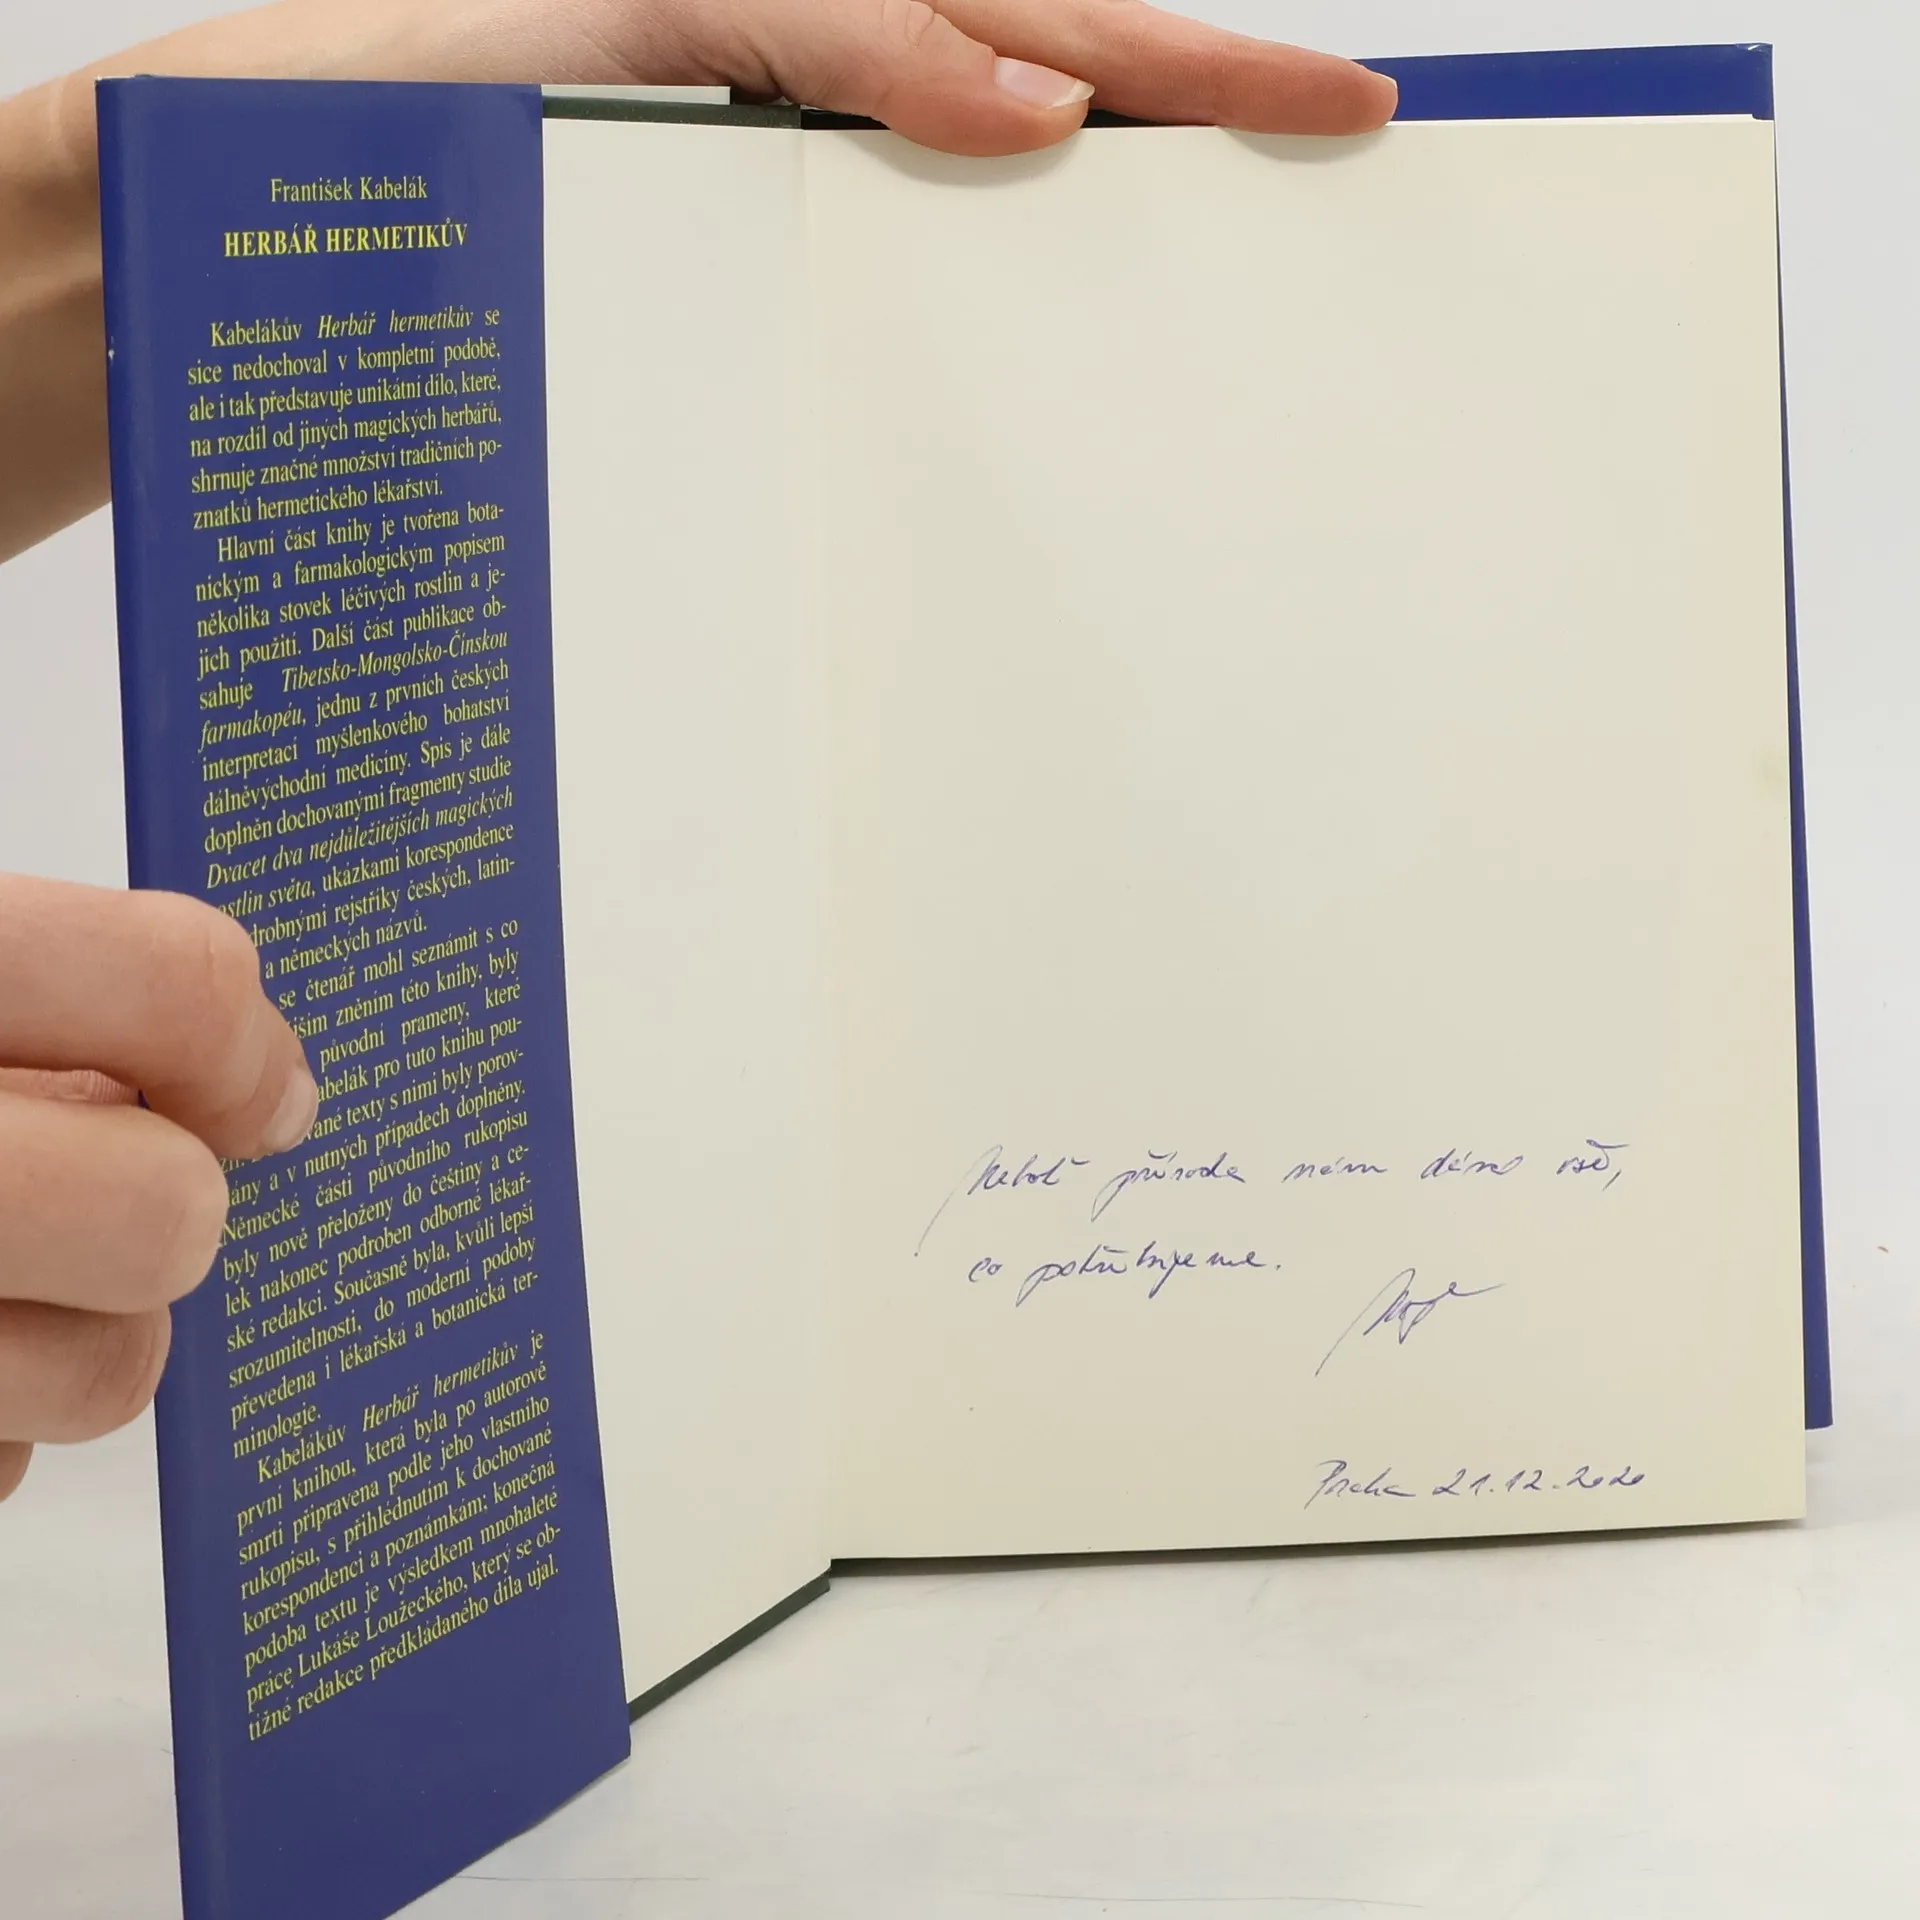 František Kabelák
HERBÁŘ HERMETIKŮV
Kabelákův Herbář hermetikův se
sice nedochoval v kompletní podobě,
ale i tak představuje unikátní dílo, které,
na rozdíl od jiných magických herbářů,
shrnuje značné množství tradičních po-
znatků hermetického lékařství.
Hlavní část knihy je tvořena bota-
nickým a farmakologickým popisem
několika stovek léčivých rostlin a je-
jich použití. Další část publikace ob-
sahuje Tibetsko-Mongolsko-Čínskou
farmakopéu, jednu z prvních českých
interpretací myšlenkového bohatství
dálněvýchodní medicíny. Spis je dále
doplněn dochovanými fragmenty studie
Dvacet dva nejdůležitějších magických
ostlin světa, ukázkami korespondence
drobnými rejstříky českých, latin-
a německých názvů.
se čtenář mohl seznámit s co
jším zněním této knihy, byly
původní prameny, které
abelák pro tuto knihu pou-
vané texty s nimi byly porov-
ány a v nutných případech doplněny.
Německé části původního rukopisu
byly nově přeloženy do češtiny a ce-
lek nakonec podroben odborné lékař-
ské redakci. Současně byla, kvůli lepší
srozumitelnosti, do moderní podoby
převedena i lékařská a botanická ter-
minologie.
Kabelákův Herbář hermetikův je
první knihou, která byla po autorově
smrti připravena podle jeho vlastního
rukopisu, s přihlédnutím k dochované
korespondenci a poznámkám; konečná
podoba textu je výsledkem mnohaleté
práce Lukáše Loužeckého, který se ob-
tížné redakce předkládaného díla ujal.
Neboť příroda nám dává vše,
co potřebujeme.
Praha 21.12.2020